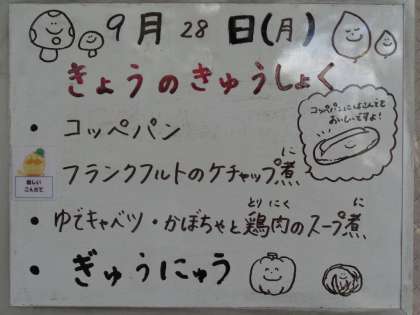 9月28日(月)
きょうのきゅうしょく
コッペパンにはさんでも
おいしいですよ!
・コッペパン
・フランクフルトのケチャップ煮
に
・ゆでキャベツ・かぼちゃと鶏肉のスープ煮
とり にく に
・ぎゅうにゅう